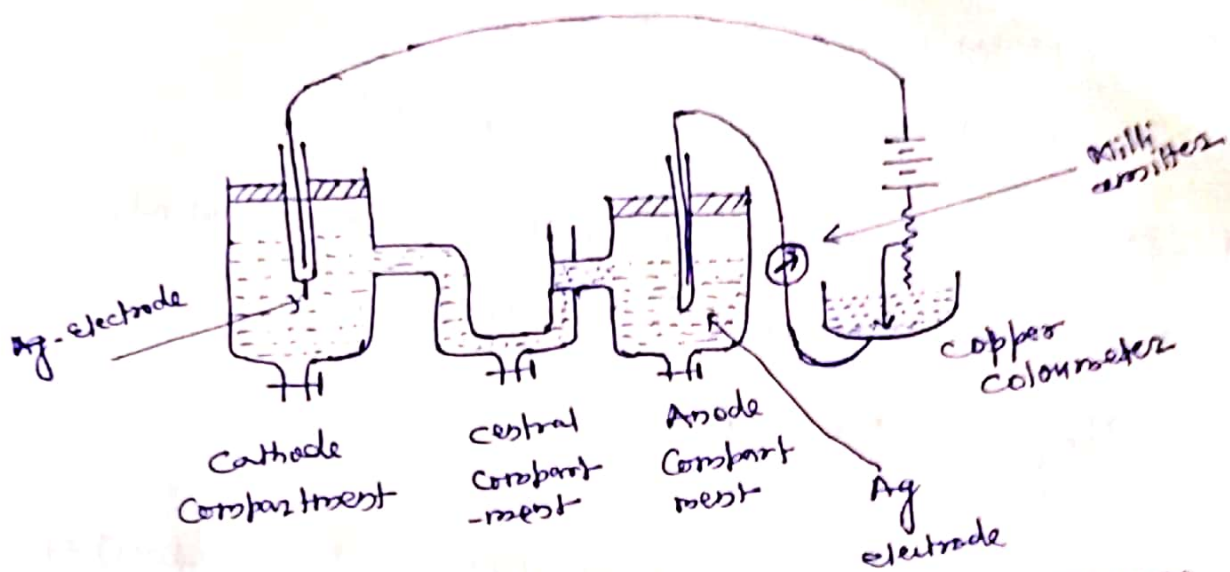 Milli
amitter
Ag-electrode
Copper
Coloumeter
Cathode
Compartment
Central
Compart
-ment
Anode
Compart
ment
Ag
electrode